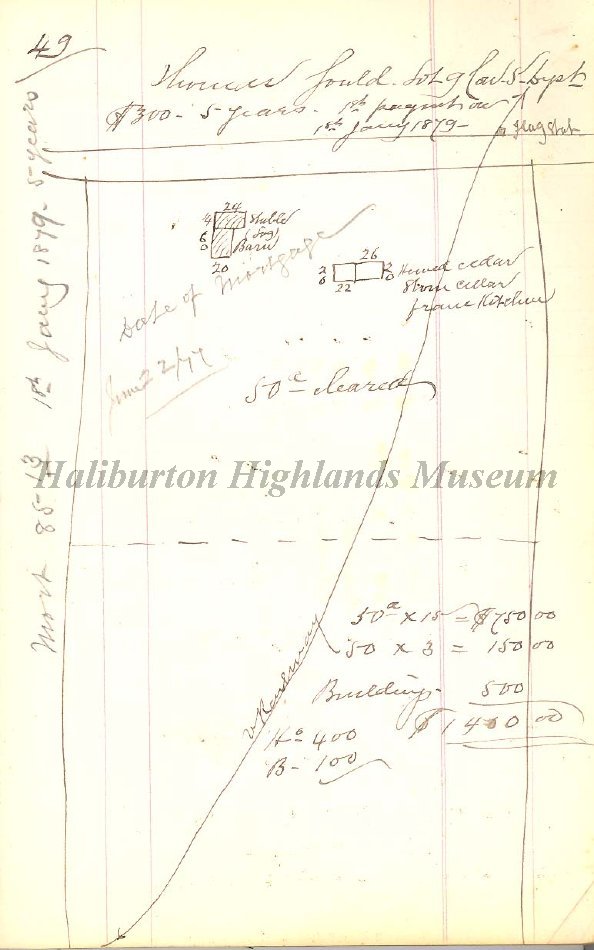 49
Thomas Gould. Lot 9 Con 5
$300 - 5 years. 1st payment on
1st Jany 1879 -
Flag Stat.
24
Stable
(Log)
Barn
60
20
26
20
20
22
Hewed cedar
Stone cellar
frame Kitchen
Date of Mortgage
June 22/77
50 a cleared
Haliburton Highlands Museum
Mort 85-13 1st Jany 1879 - 5 years
50 a x 15 = $750 00
50 x 3 = 150 00
Buildings - 500
$1400 00
Ho 400
B - 100
v Railway